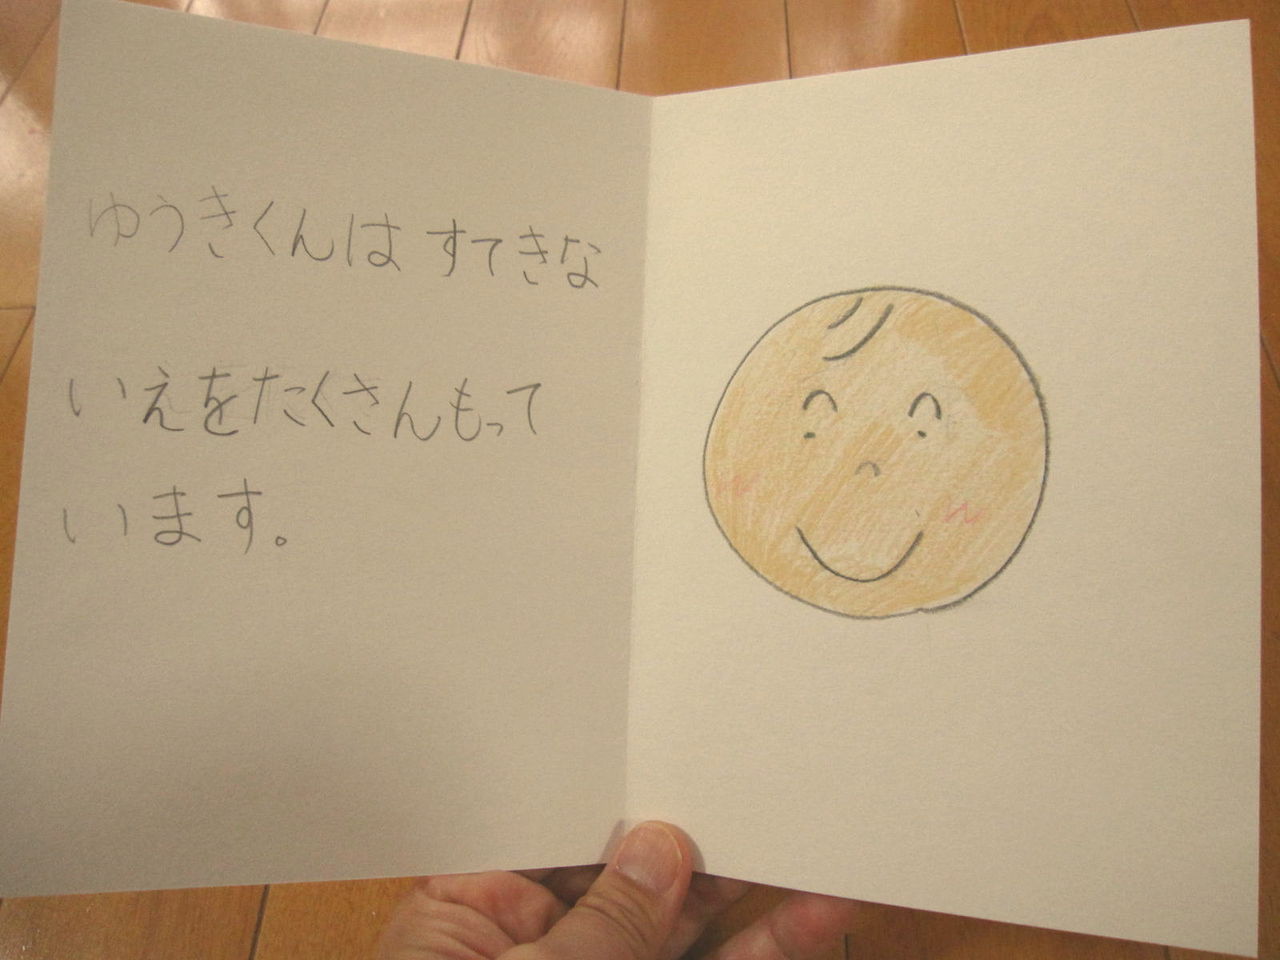 ゆうきくんは すてきな
いえをたくさんもって
います。